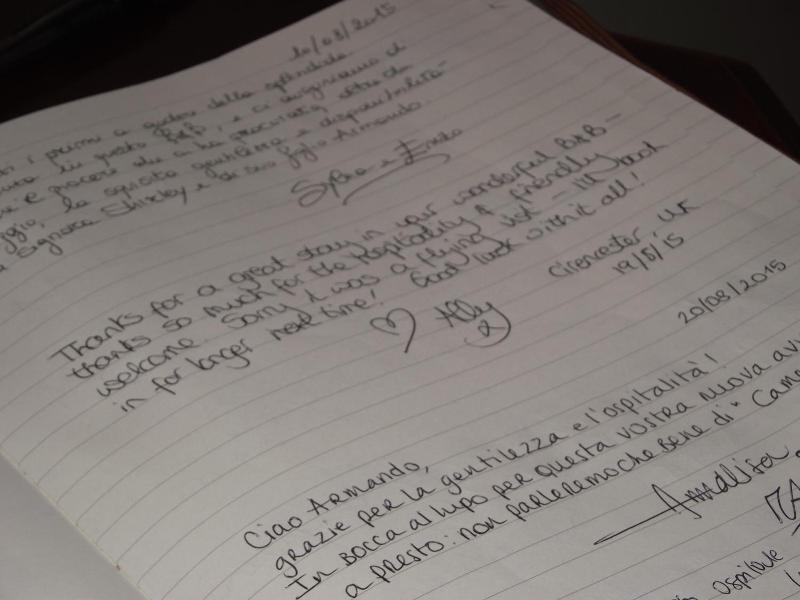 10/08/2015
i primi a godere della splendida
in questo B&B, e ci auguriamo il
e piaceri che ci ha procurato oltre che
la squisita gentilezza e disponibilità
Signora Shirley e di suo figlio Armando.
Thanks for a great stay in your wonderful B&B –
thanks so much for the hospitality & friendly
welcome. Sorry I was a flying visit – I'll book
in for longer next time! Good luck with it all!
Ally
Cirencester, UK
19/8/15
20/08/2015
Ciao Armando,
grazie per la gentilezza e l'ospitalità!
In bocca al lupo per questa vostra nuova avv
a presto: non parleremo che bene di "Cam
Annalisa
ospitale